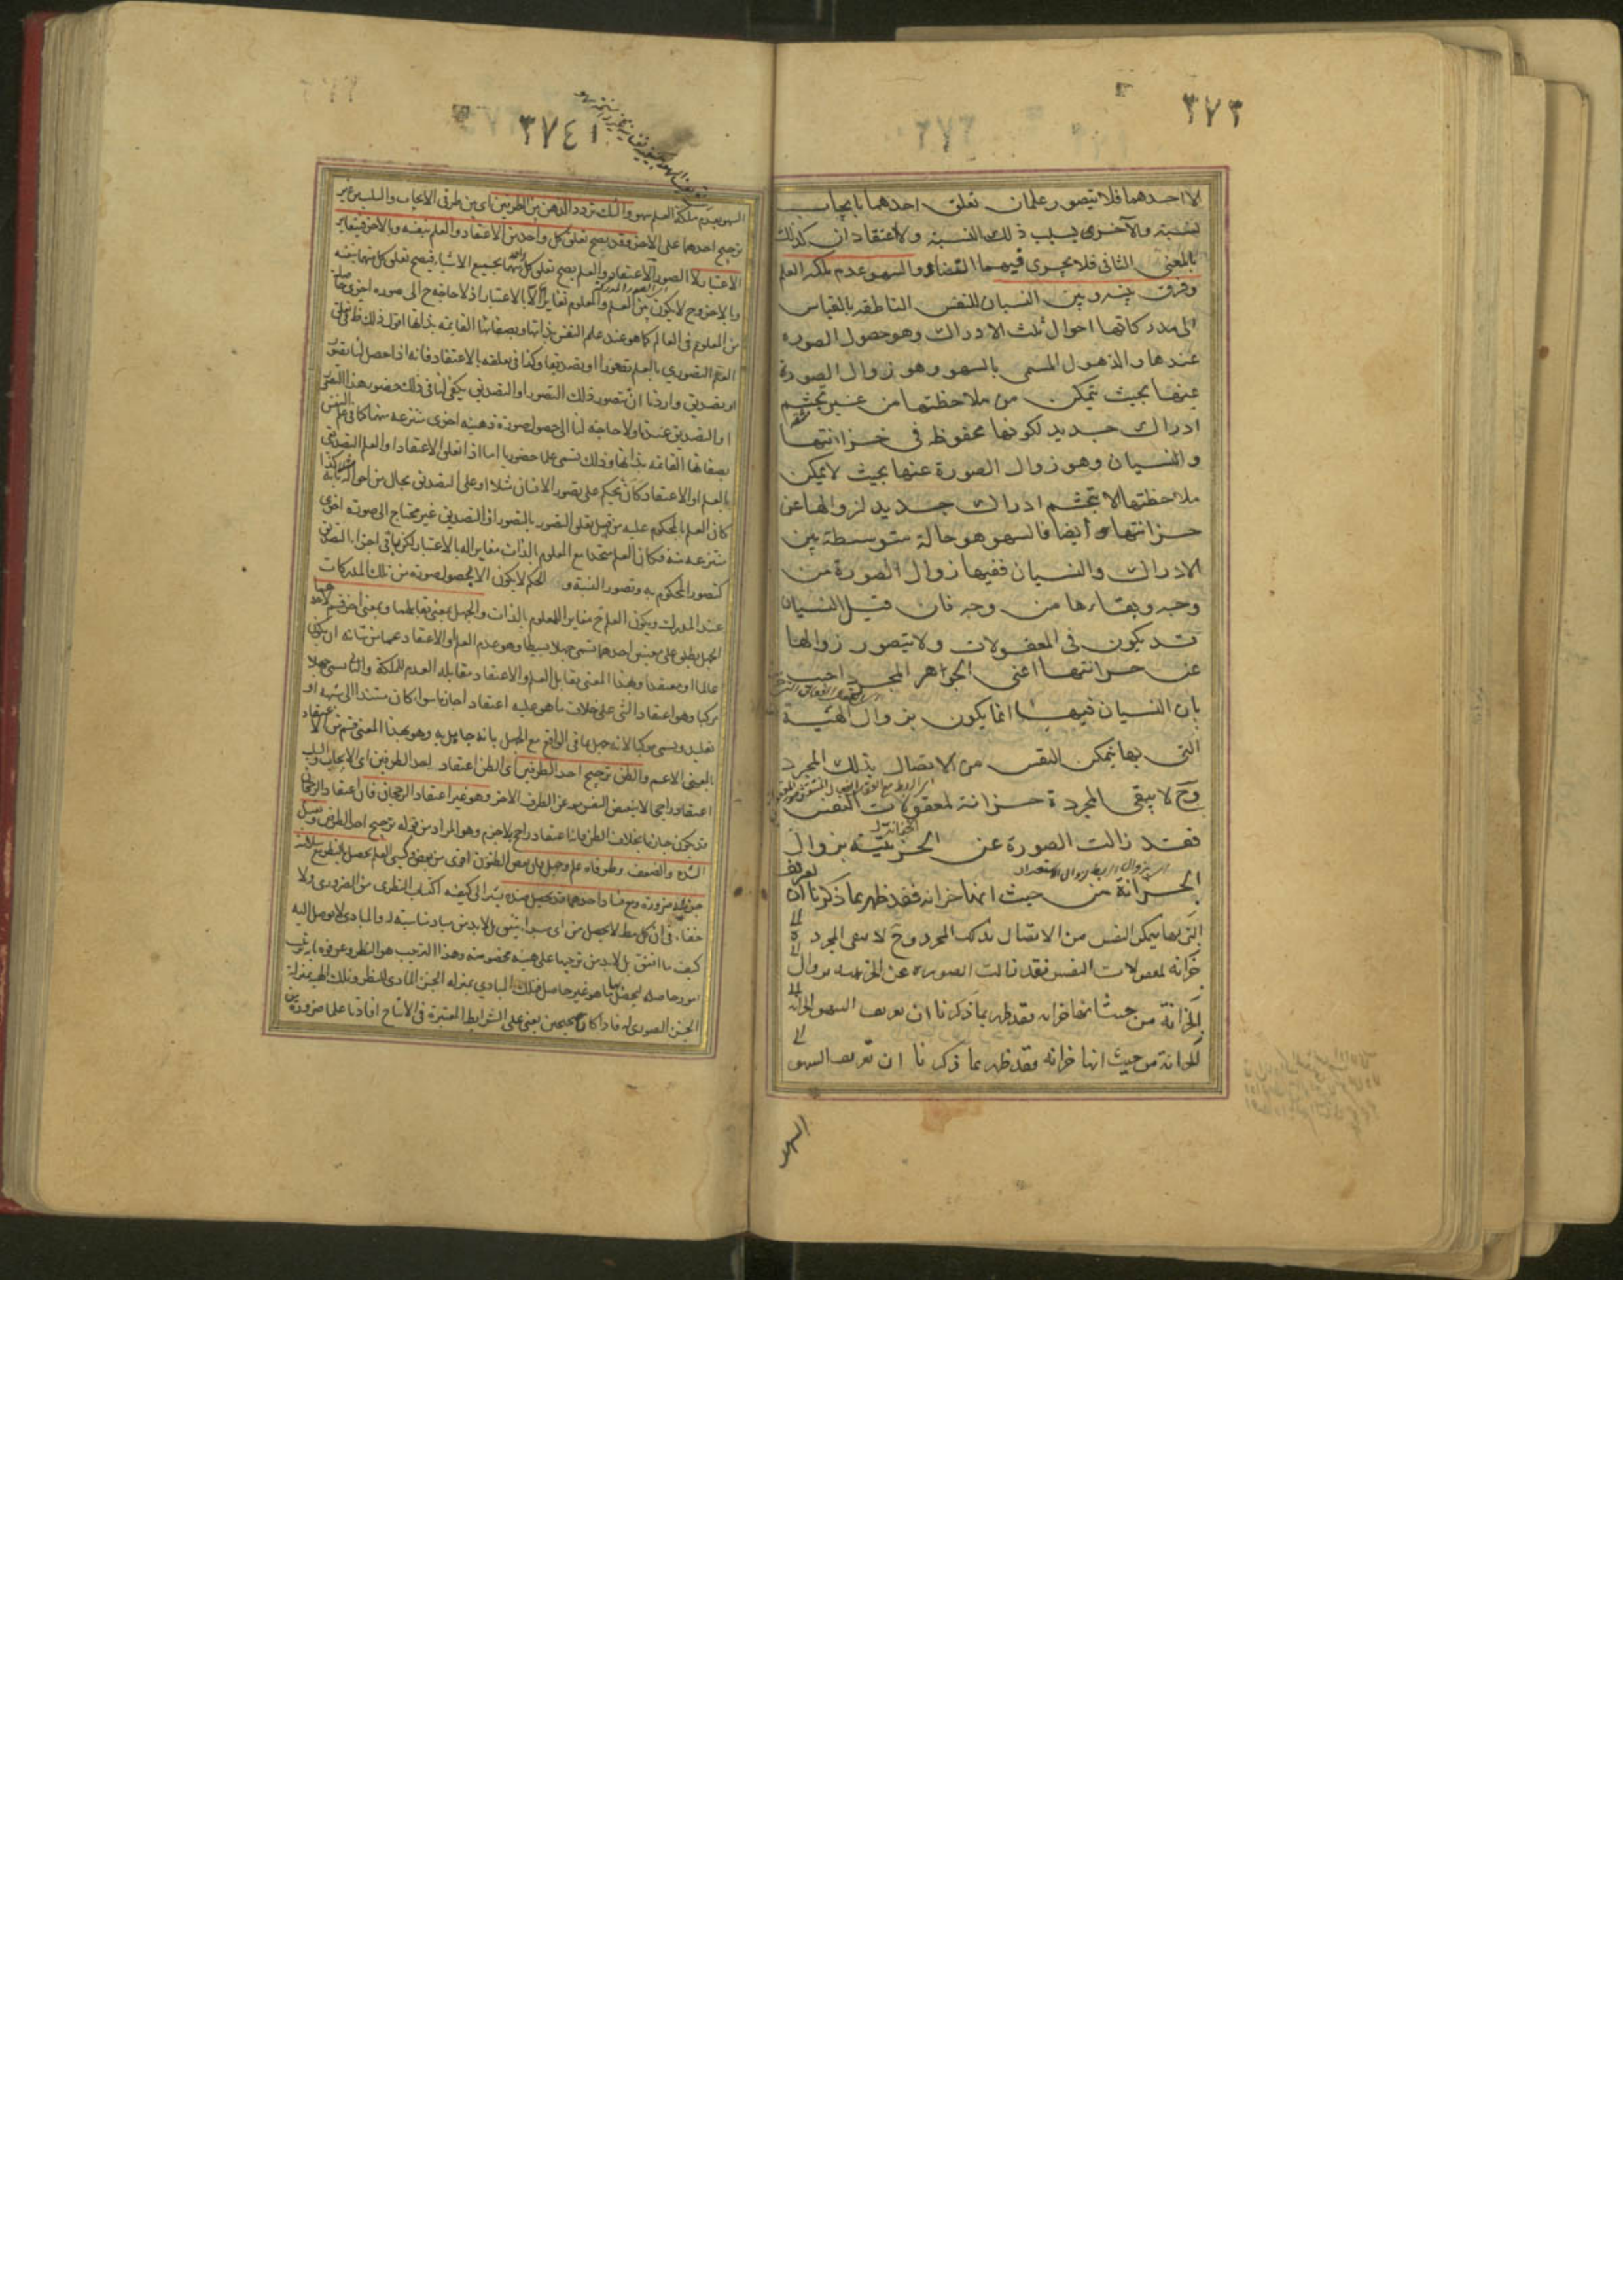 ٣٧٣
لا احدهما فلا يتصور علمان تعلق احدهما بايجاب
نسبة والآخرى بسلب ذلك النسبة ولا اعتقادان كذلك
بالمعنى الثانى فلا يجرى فيهما التضاد والسهو عدم ملكة العلم
وفرق بينه وبين النسيان للنفس الناطقة بالقياس
الى مدركاتها احوال ثلث الادراك وهو حصول الصورة
عندها والذهول المسمى بالسهو وهو زوال الصورة
عنها بحيث يتمكن من ملاحظتها من غير تجشم
ادراك جديد لكونها محفوظة فى خزانتها
والنسيان وهو زوال الصورة عنها بحيث لا يمكن
ملاحظتها الا بتجشم ادراك جديد لزوالها عن
خزانتها أيضا فالسهو هو حالة متوسطة بين
الادراك والنسيان ففيها زوال الصورة من
وجه وبقاءها من وجه فان قيل النسيان
قد يكون فى المعقولات ولا يتصور زوالها
عن خزانتها اعنى الجواهر المجرد اجيب
بان النسيان فيها انما يكون بزوال الهيئة
التى بها يتمكن النفس من الاتصال بذلك المجرد
وح لا يبقى المجردة خزانة لمعقولات النفس
فقد زالت الصورة عن الخزينة بزوال
الخزانة من حيث انها خزانة فقد ظهر بما ذكرنا ان تعريف
التى بها يتمكن النفس من الاتصال بذلك المجرد وح لا يبقى المجرد
خزانه لمعقولات النفس فقد زالت الصورة عن الخزينه بزوال
الخزانة من حيث انها خزانه فقد ظهر بما ذكرنا ان تعريف السهو
الخزانة من حيث انها خزانه فقد ظهر بما ذكرنا ان تعريف السهو
السهو
٣٧٤
السهو بعدم ملكة العلم سهو والشك تردد الذهن بين الطرفين اى بين طرفى الايجاب والسلب من غير
ترجيح احدهما على الآخر وقد يصح تعلق كل واحد من الاعتقاد والعلم بنفسه وبالآخر فيتغاير
الاعتبار لا الصور الاعتقاد والعلم يصح تعلق كل منهما بجميع الاشياء فيصح تعلق كل منهما بنفسه
وبالآخر وح لا يكون بين العلم والمعلوم تغاير الا بالاعتبار اذ لا حاجة ح الى صورة اخرى
من المعلوم فى العالم كما هو عند علم النفس بذاتها وبصفاتها القائمة بذاتها اقول ذلك
العلم التصورى بالعلم تصورا او تصديقا وكذا فى تعلقه بالاعتقاد فانه اذا حصل لنا تصور
او تصديق واردنا ان نتصور ذلك التصور او التصديق يكفى لنا فى ذلك حضور هذا التصور
او التصديق عندنا ولا حاجة لنا الى حصول صورة ذهنية اخرى منتزعة منهما كما فى علم النفس
بصفاتها القائمة بذاتها وذلك تسمى علما حضوريا اما اذا تعلق الاعتقاد او العلم التصديقى
بالعلم او الاعتقاد كان يحكم على تصور الانسان مثلا او على التصديق بحال من احواله
كان العلم بالمحكوم عليه من قبيل تعلق التصور بالتصور او التصديق غير محتاج الى صورة اخرى
منتزعة منه فكان العلم متحدا مع المعلوم بالذات مغايرا له بالاعتبار لكن باقى اجزا التصديق
كتصور المحكوم به وتصور النسبة و الحكم لا يكون الا بحصول صورة من تلك المدركات
عند المدرك ويكون العلم ح مغايرا للمعلوم بالذات والجهل بمعنى يقابلهما وبمعنى آخر قسم لاحدهما
الجهل يطلق على معنيين احدهما تسمى جهلا بسيطا وهو عدم العلم او الاعتقاد عما من شانه ان يكون
عالما او معتقدا وبهذا المعنى يقابل العلم والاعتقاد مقابلة العدم للملكة والثانى يسمى جهلا
مركبا وهو اعتقاد الشئ على خلاف ما هو عليه اعتقادا جازما سواء كان مستندا الى شبهة او
تقليد ويسمى مركبا لانه جهل بما فى الواقع مع الجهل بانه جاهل به وهو بهذا المعنى قسم من الاعتقاد
بالمعنى الاعم والظن ترجيح احد الطرفين اى الظن اعتقاد احد الطرفين اى الايجاب والسلب
اعتقادا راجحا لا يقبض النفس معه عن الطرف الآخر وهو غير اعتقاد الرجحان فان اعتقاد الرجحان
قد يكون جازما بخلاف الظن فانه اعتقاد راجح بلا جزم وهو المراد من قوله ترجيح احد الطرفين ويقبل
الشدة والضعف وطرفاه علم وجهل فان بعض الظنون اقوى من بعض وكسبى العلم يحصل بالنظر مع سلامة
جزئيه ضرورة ومع فساد احدهما قد يحصل ضده يشير الى كيفية اكتساب النظرى من الضرورى ولا
خفاء فى ان كل مط لا يحصل من اى مبدأ يتفق بل لابد من مباد مناسبة له والمبادى لا توصل اليه
كيف ما اتفق بل لابد من ترتيبها على هيئة مخصوصة وهذا الترتيب هو النظر وعرفوه بترتيب
امور حاصلة ليحصل بها ما هو غير حاصل فتلك المبادى بمنزلة الجزء المادى للنظر وتلك الهيئة بمنزلة
الجزء الصورى له فاذا كانا صحيحين يعنى على الشرايط المعتبرة فى الانتاج افادتا علما ضرورة